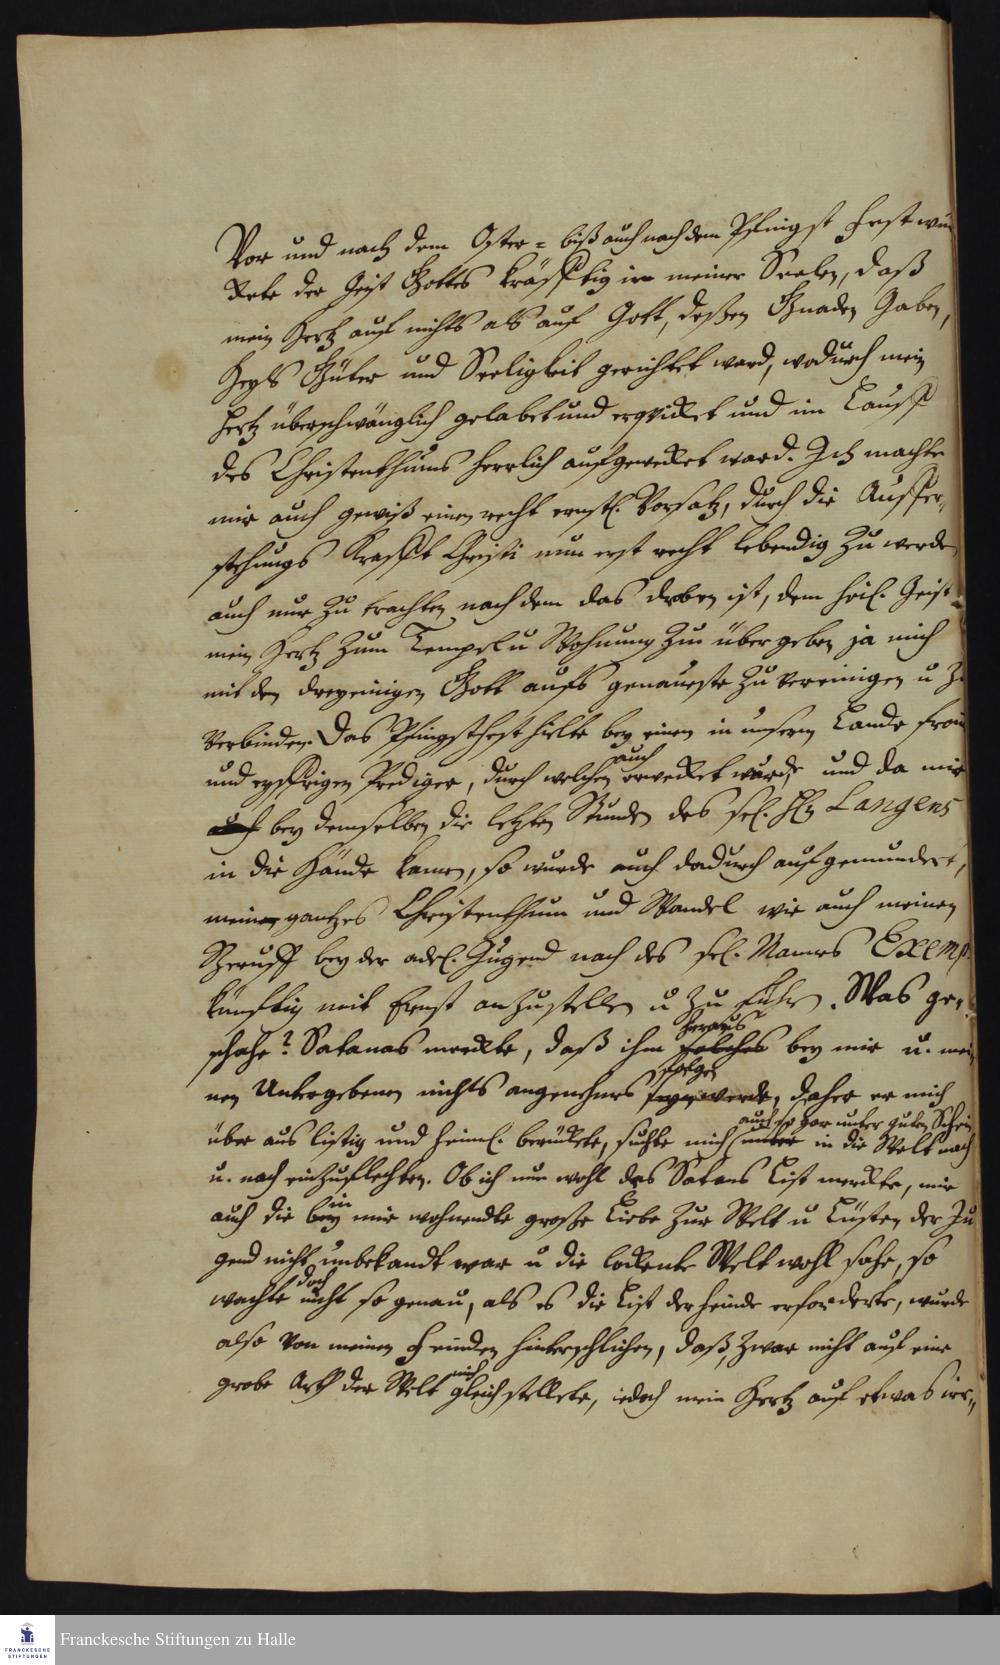 Vor und nach dem Oster- biß auch nach dem Pfingst Fest wür
ckete der Geist Gottes kräfftig in meiner Seelen, daß
mein Hertz auf nichts als auf Gott, deßen Gnaden Gaben,
Heyls Güter und Seeligkeit gerichtet ward, wodurch mein
Hertz überschwänglich gelabet und erqvicket und im Lauff
des Christenthums herrlich aufgewecket ward. Ich machte
mir auch gewiß einen recht ernstl. Vorsatz, durch die Auffer-
stehungs Krafft Christi nun erst recht lebendig zu werden
auch nur zu trachten nach dem das droben ist, dem heil. Geist
mein Hertz zum Tempel u Wohnung zu übergeben ja mich
mit den dreyeinigen Gott aufs genaueste zu vereinigen u zu
verbinden. Das Pfingstfest hielte bey einen in unserm Lande from
und eyffrigen Prediger, durch welchen auch erwecket wurde, und da mir
auch bey demselben die letzten Stunden des sel. Hn Langens
in die Hände kamen, so wurde auch dadurch aufgemundert,
mein gantzes Christenthum und Wandel wie auch meinen
Beruff bey der adel. Jugend nach des sel. Mannes Exemp
künftig mit Ernst anzustellen u zu führen. Was ge-
schahe? Satanas merckte, daß ihm solches hieraus bey mir u. mei
nen Untergebenen nichts angenehmes seyn werde folgen, daher er mich
über aus listig und heiml. berückte, suchte mich unter auch so gar unter guten Schein in die Welt nach
u. nach einzuflechten. Ob ich nun wohl des Satans List merckte, mir
auch die bey in mir wohnendte große Liebe zur Welt u Lüsten der Ju
gend nicht unbekandt war u die lockente Welt wohl sahe, so
wachte doch nicht so genau, als es die List der Feinde erforderte, wurde
also von meinen Feinden hinterschlichen, daß, zwar nicht auf eine
grobe Arth der Welt mich gleich stellete, iedoch mein Hertz auf etwas irr-
Franckesche Stiftungen zu Halle
FRANCKESCHE
STIFTUNGEN